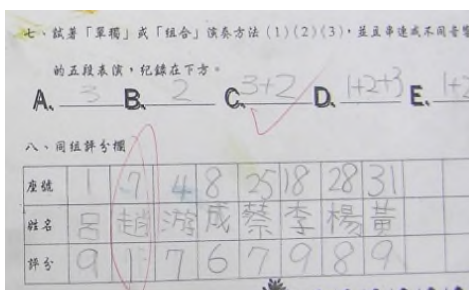 七、試著「單獨」或「組合」演奏方法(1)(2)(3)，並且串連成不同音響
的五段表演，紀錄在下方。
A. 3 B. 2 C. 3+2 D. 1+2+3 E. 1+2
八、同組評分欄
座號 1 7 4 8 25 18 28 31
姓名 呂 趙 游 成 蔡 李 楊 黃
評分 9 1 7 6 7 9 8 9